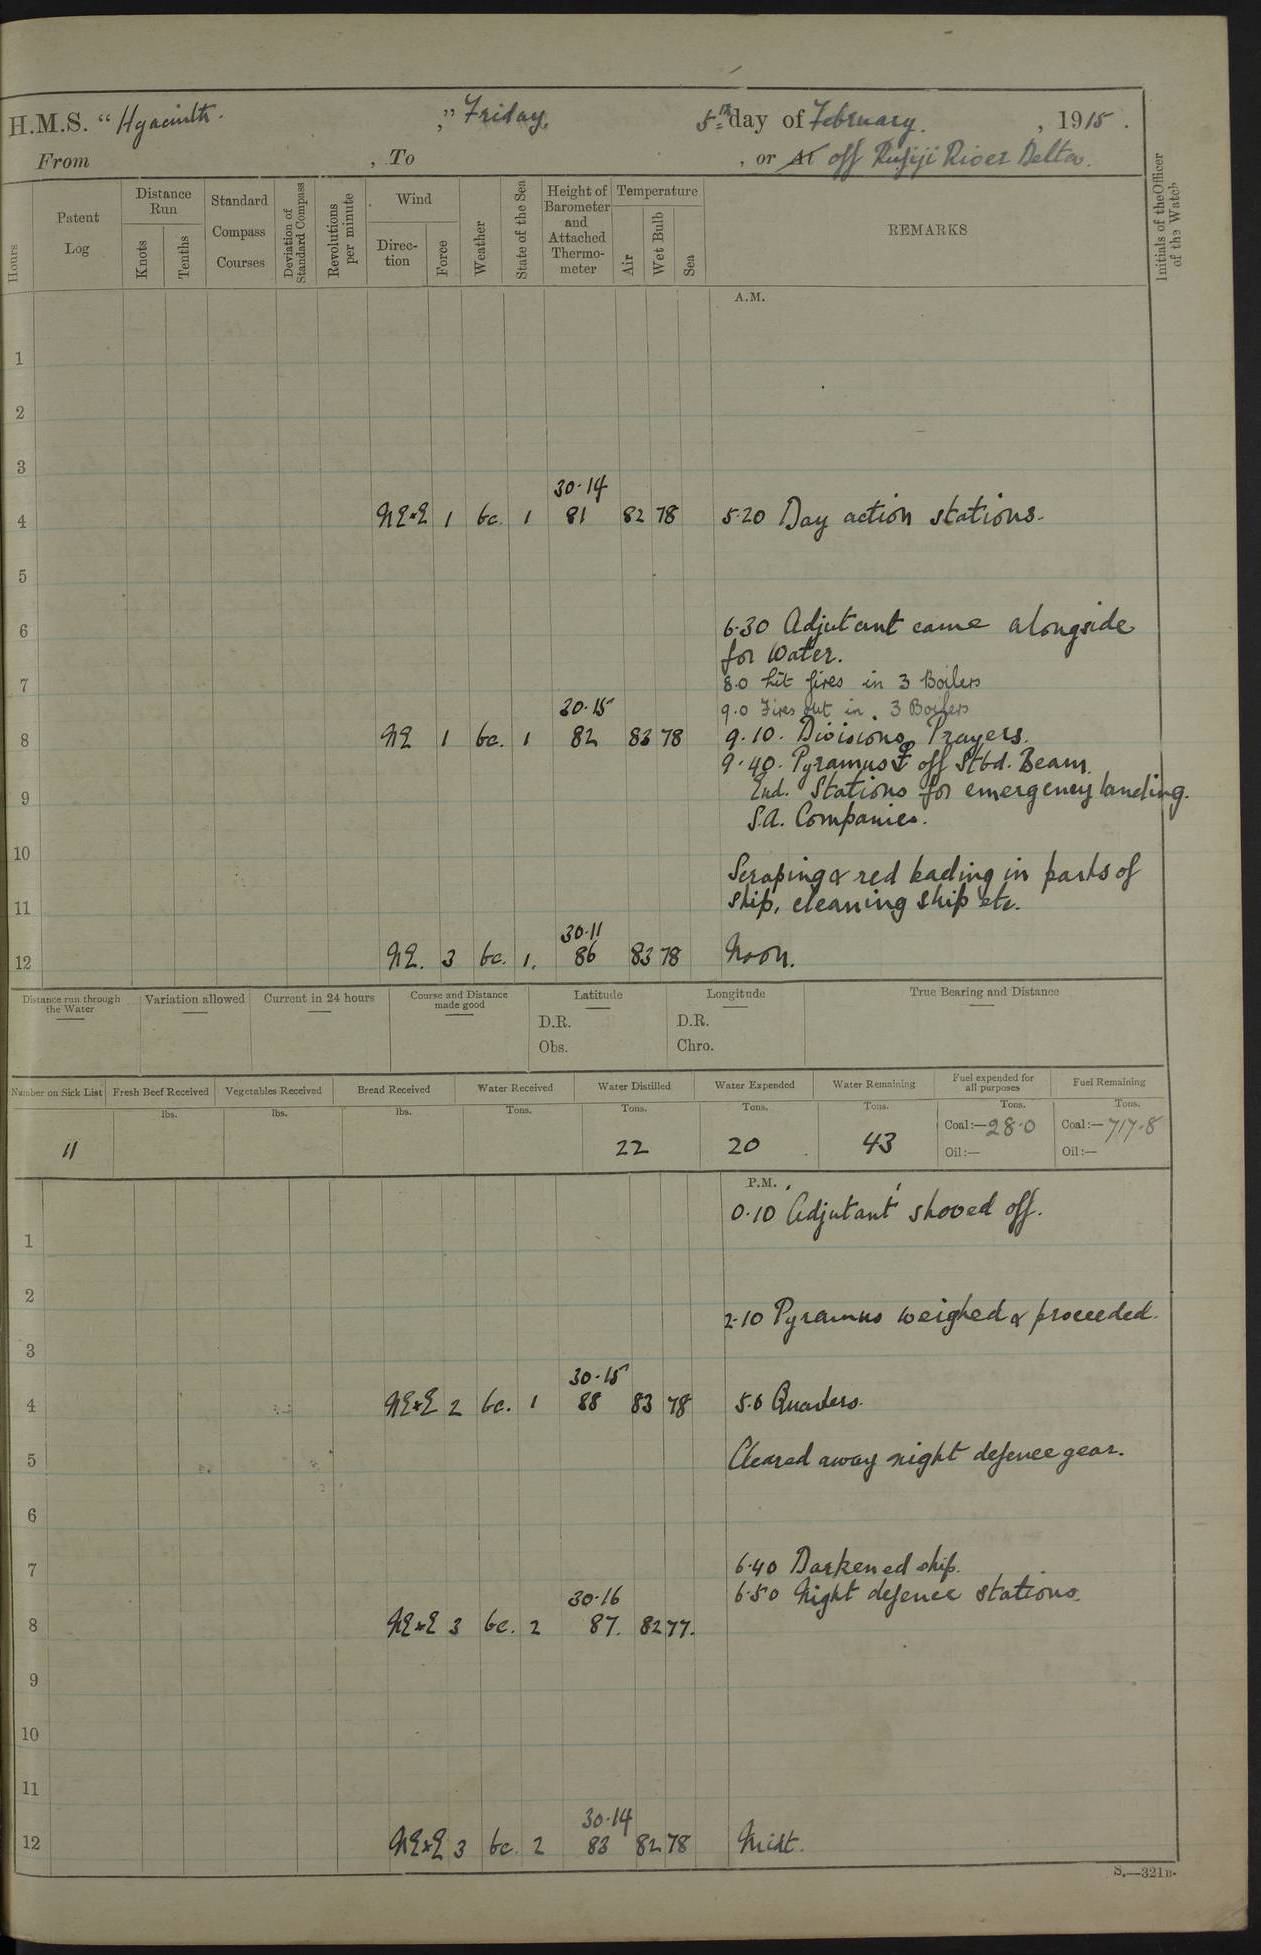 H.M.S. "Hyacinth." Friday, 5th day of February, 1915.
From , To , or At off Rufiji River Delta.
Hours
Patent Log
Distance Run
Knots
Tenths
Standard Compass Courses
Deviation of Standard Compass
Revolutions per minute
Wind
Direction
Force
Weather
State of the Sea
Height of Barometer and Attached Thermometer
Temperature
Air
Wet Bulb
Sea
REMARKS
Initials of the Officer of the Watch
A.M.
1
2
3
30·14
4 NExE 1 bc. 1 81 82 78 5·20 Day action stations.
5
6 6·30 Adjutant came alongside
for water.
7 8·0 Lit fires in 3 Boilers
30·15 9·0 Fires out in 3 Boilers
8 NE 1 bc. 1 82 83 78 9·10. Divisions, Prayers.
9·40. Pyramus ⚓ off Stbd. Beam.
9 End. Stations for emergency landing.
S.A. Companies.
10 Scraping & red leading in parts of
11 ship, cleaning ship etc.
30·11
12 NE. 3 bc. 1. 86 83 78 Noon.
Distance run through the Water
Variation allowed
Current in 24 hours
Course and Distance made good
Latitude
D.R.
Obs.
Longitude
D.R.
Chro.
True Bearing and Distance
Number on Sick List Fresh Beef Received Vegetables Received Bread Received Water Received Water Distilled Water Expended Water Remaining Fuel expended for all purposes Fuel Remaining
lbs. lbs. lbs. Tons. Tons. Tons. Tons. Tons. Tons.
11 22 20 43 Coal:—28·0 Coal:—717·8
Oil:— Oil:—
P.M.
0·10 'Adjutant' shoved off.
1
2 2·10 Pyramus weighed & proceeded.
3
30·15
4 NExE 2 bc. 1 88 83 78 5·0 Quarters.
5 Cleared away night defence gear.
6
7 6·40 Darkened ship.
30·16 6·50 Night defence stations.
8 NExE 3 bc. 2 87. 82 77.
9
10
11
30·14
12 NExE 3 bc. 2 83 82 78 Midt.
S.—321B.